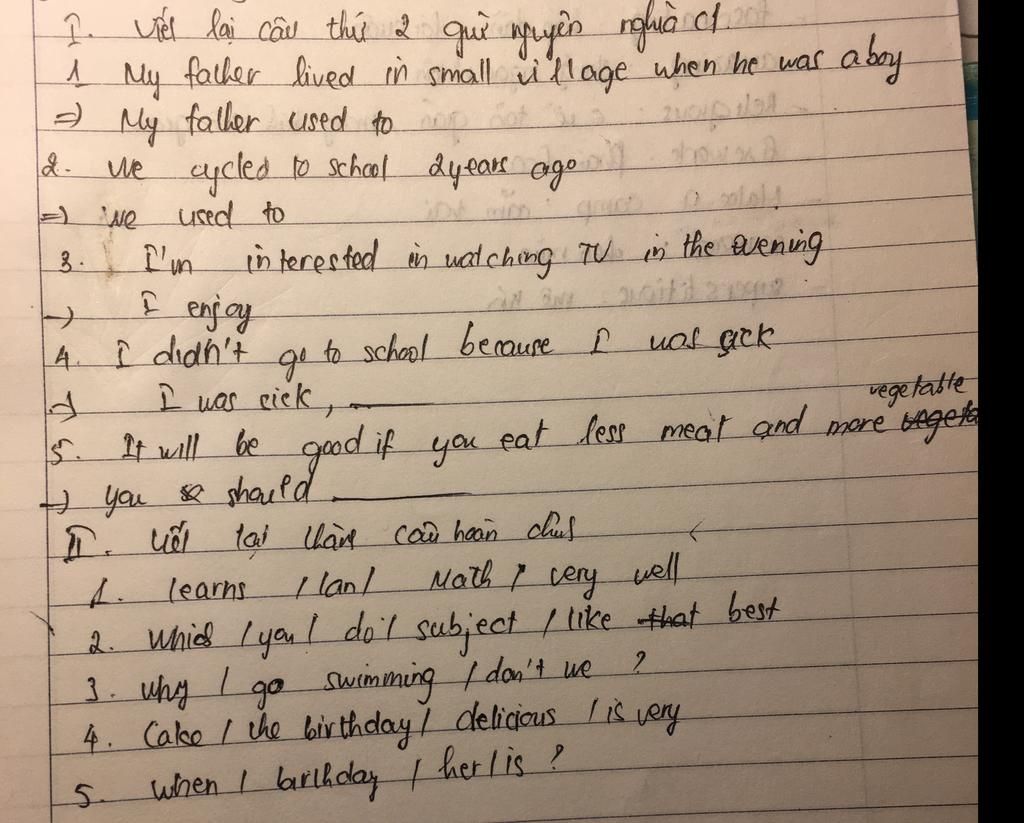 I. Viết lại câu thứ 2 giữ nguyên nghĩa c1
1 My father lived in small village when he was a boy
=> My father used to
2. We cycled to school 2 years ago
=> we used to
3. I'm interested in watching TV in the evening
-> I enjoy
4. I didn't go to school because I was sick
-> I was sick, ______
5. It will be good if you eat less meat and more vegetable
-> you should ______
II. Viết lại thành câu hoàn chỉnh
1. learns / lan / Math / very well
2. Which / you / do / subject / like best
3. why / go swimming / don't we ?
4. Cake / the birthday / delicious / is very
5. when / birthday / her / is ?